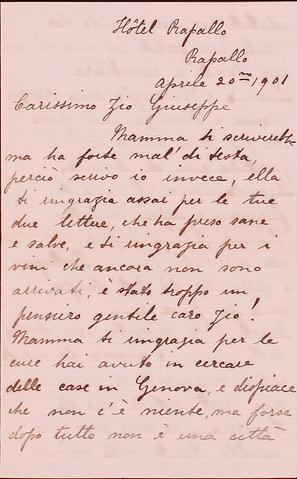 Hôtel Rapallo
Rapallo
Aprile 20mo, 1901
Carissimo Zio Giuseppe
Mamma ti scriverebbe
ma ha forte mal' di testa,
perciò scrivo io invece, ella
ti ringrazia assai per le tue
due lettere, che ha preso sane
e salve, e ti ringrazia per i
vini che ancora non sono
arrivati, è stato troppo un
pensiero gentile caro Zio!
Mamma ti ringrazia per le
cure hai avuto in cercare
delle case in Genova, e dispiace
che non c'è niente, ma forse
dopo tutto non è una città